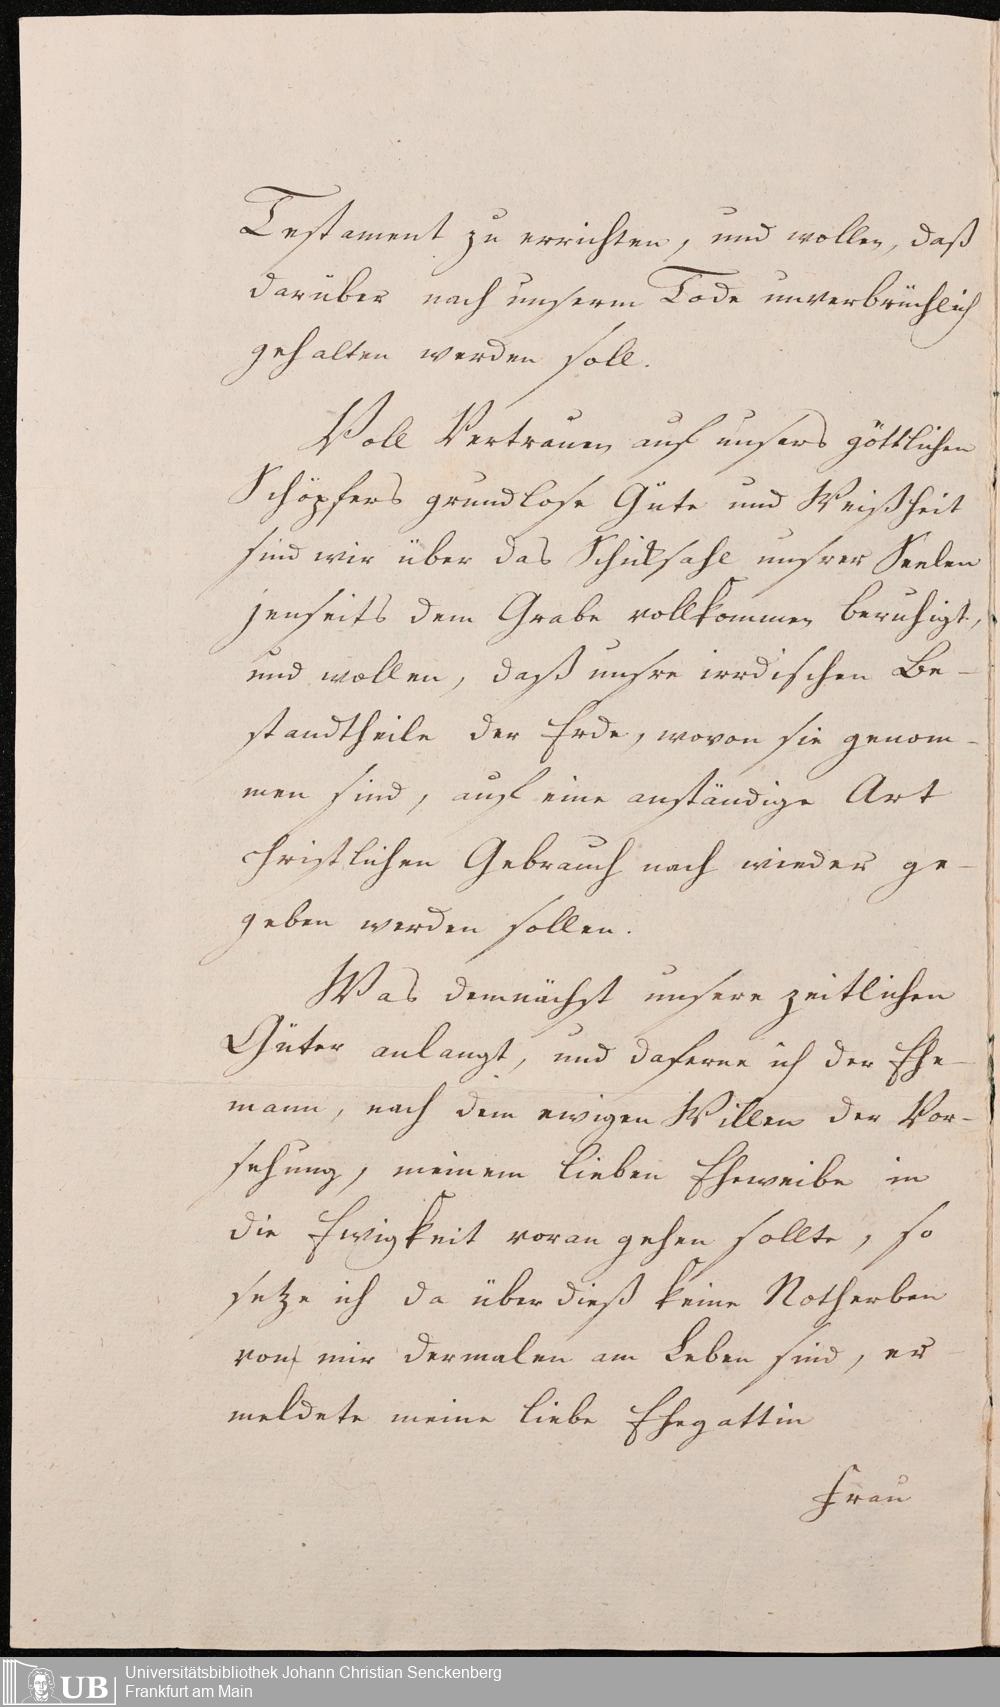 Testament zu errichten, und wollen, daß
darüber nach unserm Tode unverbrüchlich
gehalten werden soll.
Voll Vertrauen auf unsers göttlichen
Schöpfers grundlose Güte und Weißheit
sind wir über das Schiksahl unsrer Seelen
jenseits dem Grabe vollkommen beruhigt,
und wollen, daß unsre irrdischen Be-
standtheile der Erde, wovon sie genom-
men sind, auf eine anständige Art
christlichen Gebrauch nach wieder ge-
geben werden sollen.
Was demnächst unsere zeitlichen
Güter anlangt, und daferne ich der Ehe-
mann, nach dem ewigen Willen der Vor-
sehung, meinem lieben Eheweibe in
die Ewigkeit voran gehen sollte, so
setze ich da überdieß keine Notherben
von mir dermalen am Leben sind, er-
meldete meine liebe Ehegattin
Frau
UB
Universitätsbibliothek Johann Christian Senckenberg
Frankfurt am Main